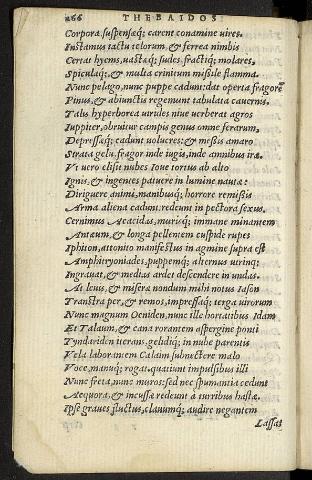 266 THEBAIDOS
Corpora, suspensæq; carent conamine vires.
Instamus iactu telorum, & ferrea nimbis
Certat hyems, uastæq; sudes, fractiq; molares,
Spiculaq;, & multa crinitum missile flamma.
Nunc pelago, nunc puppe cadunt: dat operta fragorē
Pinus, & abiunctis regemunt tabulata cauernis.
Talis hyperborea uirides niue uerberat agros
Iuppiter, obruitur campis genus omne ferarum,
Depressæq; cadunt uolucres: & messis amaro
Strata gelu, fragor inde iugis, inde amnibus iræ.
Vt uero elisit nubes Ioue tortus ab alto
Ignis, & ingentes patuere in lumine nautæ:
Diriguere animi, manibusq; horrore remissis
Arma aliena cadunt: redeunt in pectora sexus.
Cernimus Aeacidas, muriq; immane minantem
Antæum, & longa pellentem cuspide rupes
Iphiton, attonito manifestus in agmine supra est
Amphitryoniades, puppemq; alternus utrinq;
Ingrauat, & medias ardet descendere in undas.
At leuis, & miseræ nondum mihi notus Iason
Transtra per, & remos, impressaq; terga uirorum
Nunc magnum Oeniden, nunc ille hortatibus Idam
Et Talaum, & cana rorantem aspergine ponti
Tyndariden iterans, gelidiq; in nube parentis
Vela laborantem Calaim subnectere malo
Voce, manuq; rogat. quatiunt impulsibus illi
Nunc freta, nunc muros: sed nec spumantia cedunt
Aequora, & incussæ redeunt à turribus hastæ.
Ipse graues fluctus, clauumq; audire negantem
Lassat